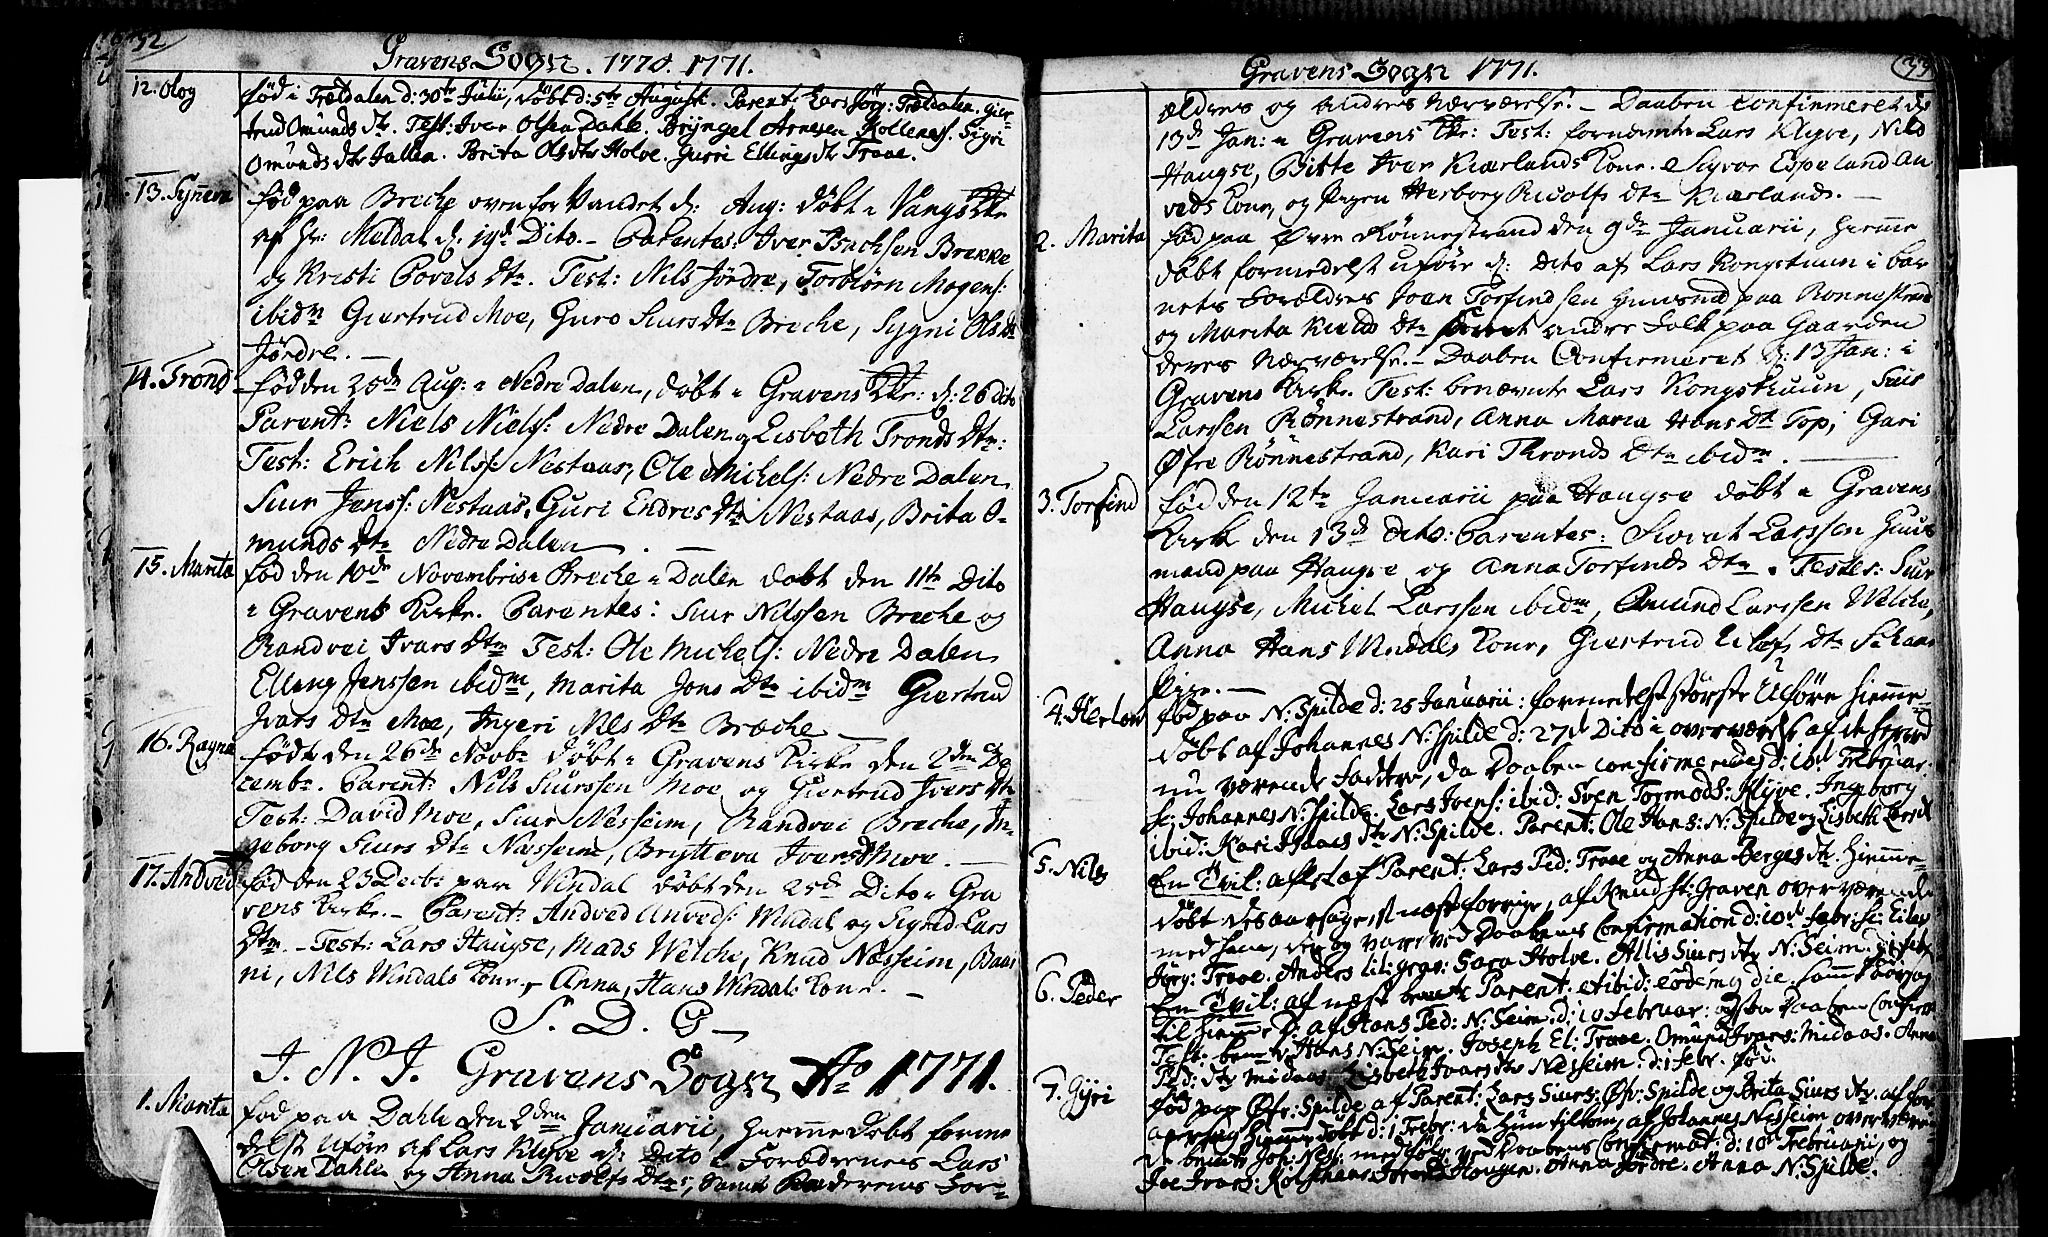 52
Gravens Sogn. 1770. 1771.
12. Olog
fød i Trældalen d: 30te Julii, døbt d: 5te August. Parent: Lars Jørg: Trældalen. Gier-
trud Omunds dtr. Test: Iver Olsen Dahle. Bryngel Arnesen Kollenes. Sigri
Omunds dtr Jallea. Brita Ols dtr Holve. Gurri Ellings dtr Traae.
13. Synneva
fød paa Breche oven for Vandet d: Aug: døbt i Vangs Kr
af Hr: Meldal d. 19d Dito. – Parentes: Iver Isachsen Brekke
og Kristi Povels Dtr. Test: Nils Jørdre, Torbiørn Mogens:
ibidm Giertrud Moe, Guro Siurs Dtr Breche, Sygni Ols dtr
Jørdre. –
14. Trond
fød den 25de Aug: i Nedre Dalen, døbt i Gravens Kr: d: 26 dito
Parent: Niels Niels: Nedre Dalen og Lisbeth Tronds Dtr:
Test: Erich Nils: Nestaas, Ole Michels: Nedre Dalen
Siur Jenss: Nestaas, Guri Endres Dtr Nestaas, Brita O-
munds Dtr Nedre Dalen. –
15. Marita
fød den 10de Novembris i Breche i Dalen døbt den 11te Dito
i Gravens Kirke. Parentes: Siur Nilssen Breche og
Randvei Ivars Dtr Test: Ole Michels: Nedre Dalen
Elling Jenssen ibidm, Marita Jons Dtr ibidm Giertrud
Ivars Dtr Moe, Ingeri Nils Dtr Breche –
16. Ragna
født den 26de Novbr døbt i Gravens Kirke den 2den De
cembr. Parent: Nils Siurssen Moe og Giertrud Ivers Dtr
Test: David Moe, Siur Nesseim, Randvei Breche, In-
geborg Siurs Dtr Næsseim, Brytteva Ivers Dtr Moe. –
17. Andved
fød den 23 Decbr paa Vindal døbt den 25de Dito i Gra
vens Kirke. – Parent: Andved Anveds: Windal og Sigrid Lars
Dtr. – Test: Lars Haugse, Mads Welche, Knud Næsseim, Baar
ni, Nils Windals Kone, Anna, Hans Windals Kone. –
S. D. G –
I. N. J. Gravens Sogn Ao 1771.
1. Marita
fød paa Dahle den 2den Januarii, hiemme døbt forme
delst uføre af Lars Klyve d: Dito i Forældrenes Lars
Olsen Dahle og Anna Ricolfs Dtr, samt Fadderenes For-
Gravens Sogn 1771.
ældres og andres nærværelse. – Daaben confirmeret d:
13d Jan: i Gravens Kr: Test: fornæmte Lars Klyve, Nils
Haugse, Bitte Iver Kiærlands Kone. Sygvor Espeland An
veds Kone, og Pigen Herborg Ricolfs Dtr Kiærland. –
2. Marita
fød paa Øvre Rønnestrand den 9de Januarii, hiemme
døbt formedelst uføre d: Dito af Lars Kongstuun i Bar
nets Forældres Joen Torfindsen Huusmd paa Rønnestrand
og Marita Dtr samt andre Folk paa Gaarden
deres nærværelse. – Daaben Confirmeret d: 13 Jan: i
Gravens Kirke. Test: benævnte Lars Kongsthuun, Siur
Larssen Rønnestrand, Anna Maria Hans Dtr Top, Guri
Øfre Rønnestrand, Kari Thronds Dtr ibidm. –
3. Torfind
fød den 12te Januarii paa Haugse døbt i Gravens
Kirke den 13de Dito: Parentes: Siovat Larssen Huus
mand paa Haugse og Anna Torfinds Dtr. Testes: Siur
Haugse, Michel Larssen ibidm, Omund Larssen Welche,
Anna Hans Windals Kone, Giertrud Dtr Schaar
–
4. Herlov
fød paa N: Spilde d: 25 Januarii: formedelst største Uføre hiemme-
døbt af Johannes N: Spilde d: 27d Dito i overværelse af de
nu værende Faddere, da Daaben confirmeredes d: 10d Februar.
sc: Johannes N: Spilde. Lars Joens: ibid: Sven Tormods: Klyve. Ingeborg
ibid: Kari Isaacs dtr N: Spilde. Parent: Ole Hans: N: Spilde og Lisbeth Lars dtr
5. Nils
En Tvil: afl af Parent: Lars Ped: Traae og Anna Berges dtr. hiemme-
døbt af næstforrige, af Knud St: Graven overværende
med ham, og vare ved Daabens Confirmation d: 10d febr: sc: Eilev
Jørg: Traae. Anders Lil: Grav: Sara Holve. Allis Siurs dtr N: Seim. d: 1 febr
6. Peder
En Tvil: af næst Parent: et ibid: eodem die, samme aarsag
til hiemme D: af Hans Ped: N: Seim. d: 10 februar: ogsaa Daaben Confirm.
Test: Hans N: Seim. Joseph El: Traae. Omund Ivars: Midaas. Anna
Ped: dtr Midaas. Lisbeth Ivars dtr Nesseim. d: 1 febr. fød.
7. Gyri
fød paa Øfr: Spilde af Parent: Lars Siurs: Øfr: Spilde og Brita Siurs dtr. af for
aarsag hiemmedøbt d: 1 Febr: da hun tilkom, af Johannes Nesseim overværen-
de Joh: Nes: med Følg: ved Daabens Confirmat: d: 10d Februarii, og
Joe Ivars: Haugen. Anna Jørdre. Anna N: Spilde.